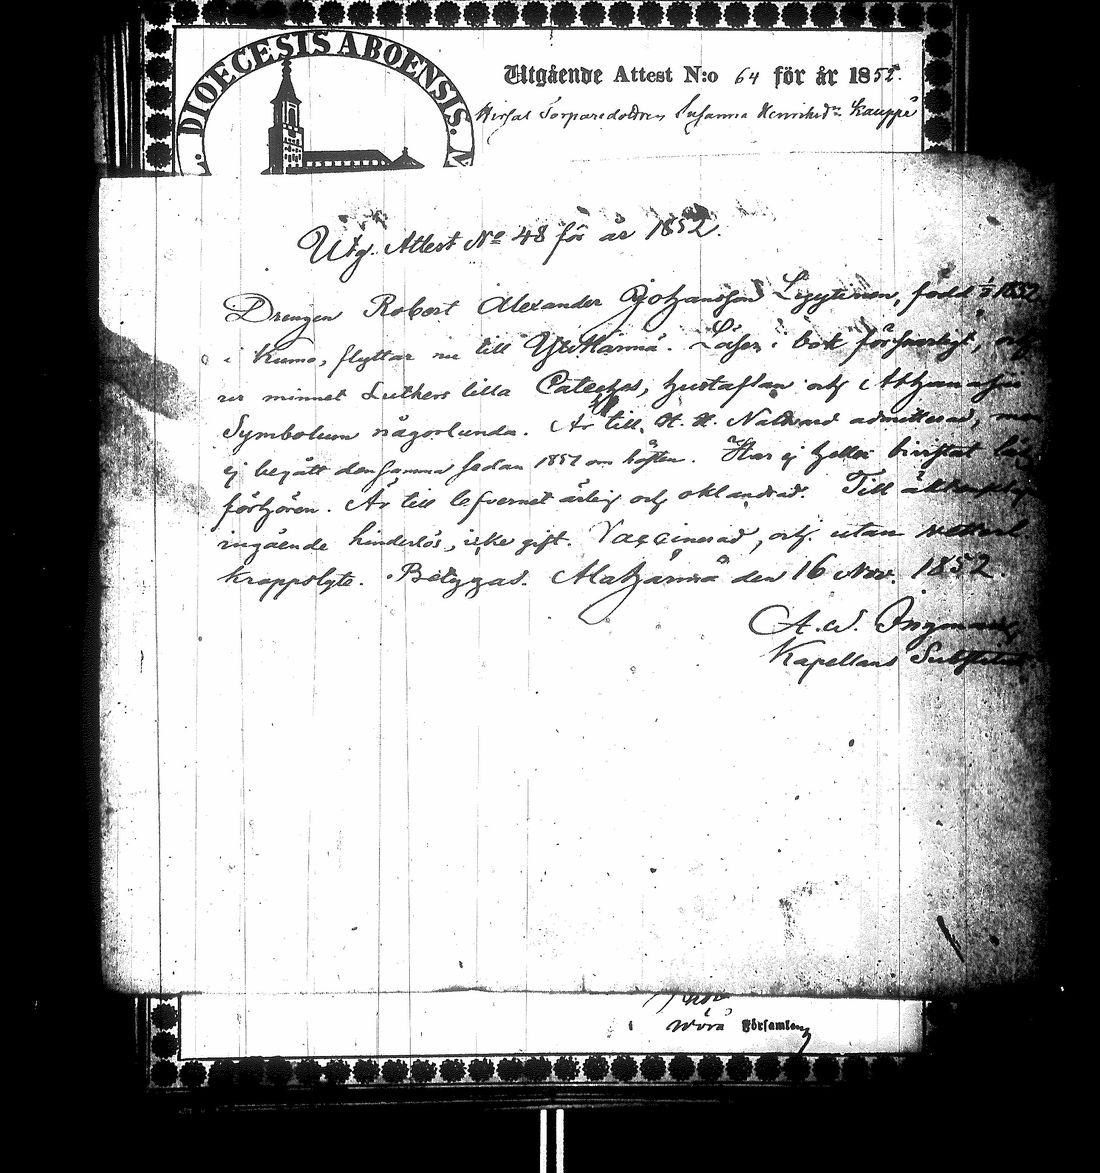 DIOECESIS ABOENSIS.
Utgående Attest N:o 64 för år 1852.
Torparedottren Susanna Henriksdr Kauppi
Utg. Attest No 48 för år 1852.
Drengen Robert Alexander Johansson född 1832
i Kumo, flyttar nu till Ylihärmä. Läser i bok försvarligt, och
ur minnet Luthers lilla Cateches, hustaflan och Athanasii
Symbolum någorlunda. Är till H. H. Nattvard admitterad, men
ej begått densamma sedan 1851 om hösten. Har ej heller bivistat läs-
förhören. Är till lefvernet ärlig och oklandrad. Till äktenskaps
ingående hinderlös, icke gift. Vaccinerad, och utan
kroppslyte. Betygas. Alahärmä den 16 Nov. 1852.
A. W. Ingman
Kapellans Substitut.
Wörå Församling